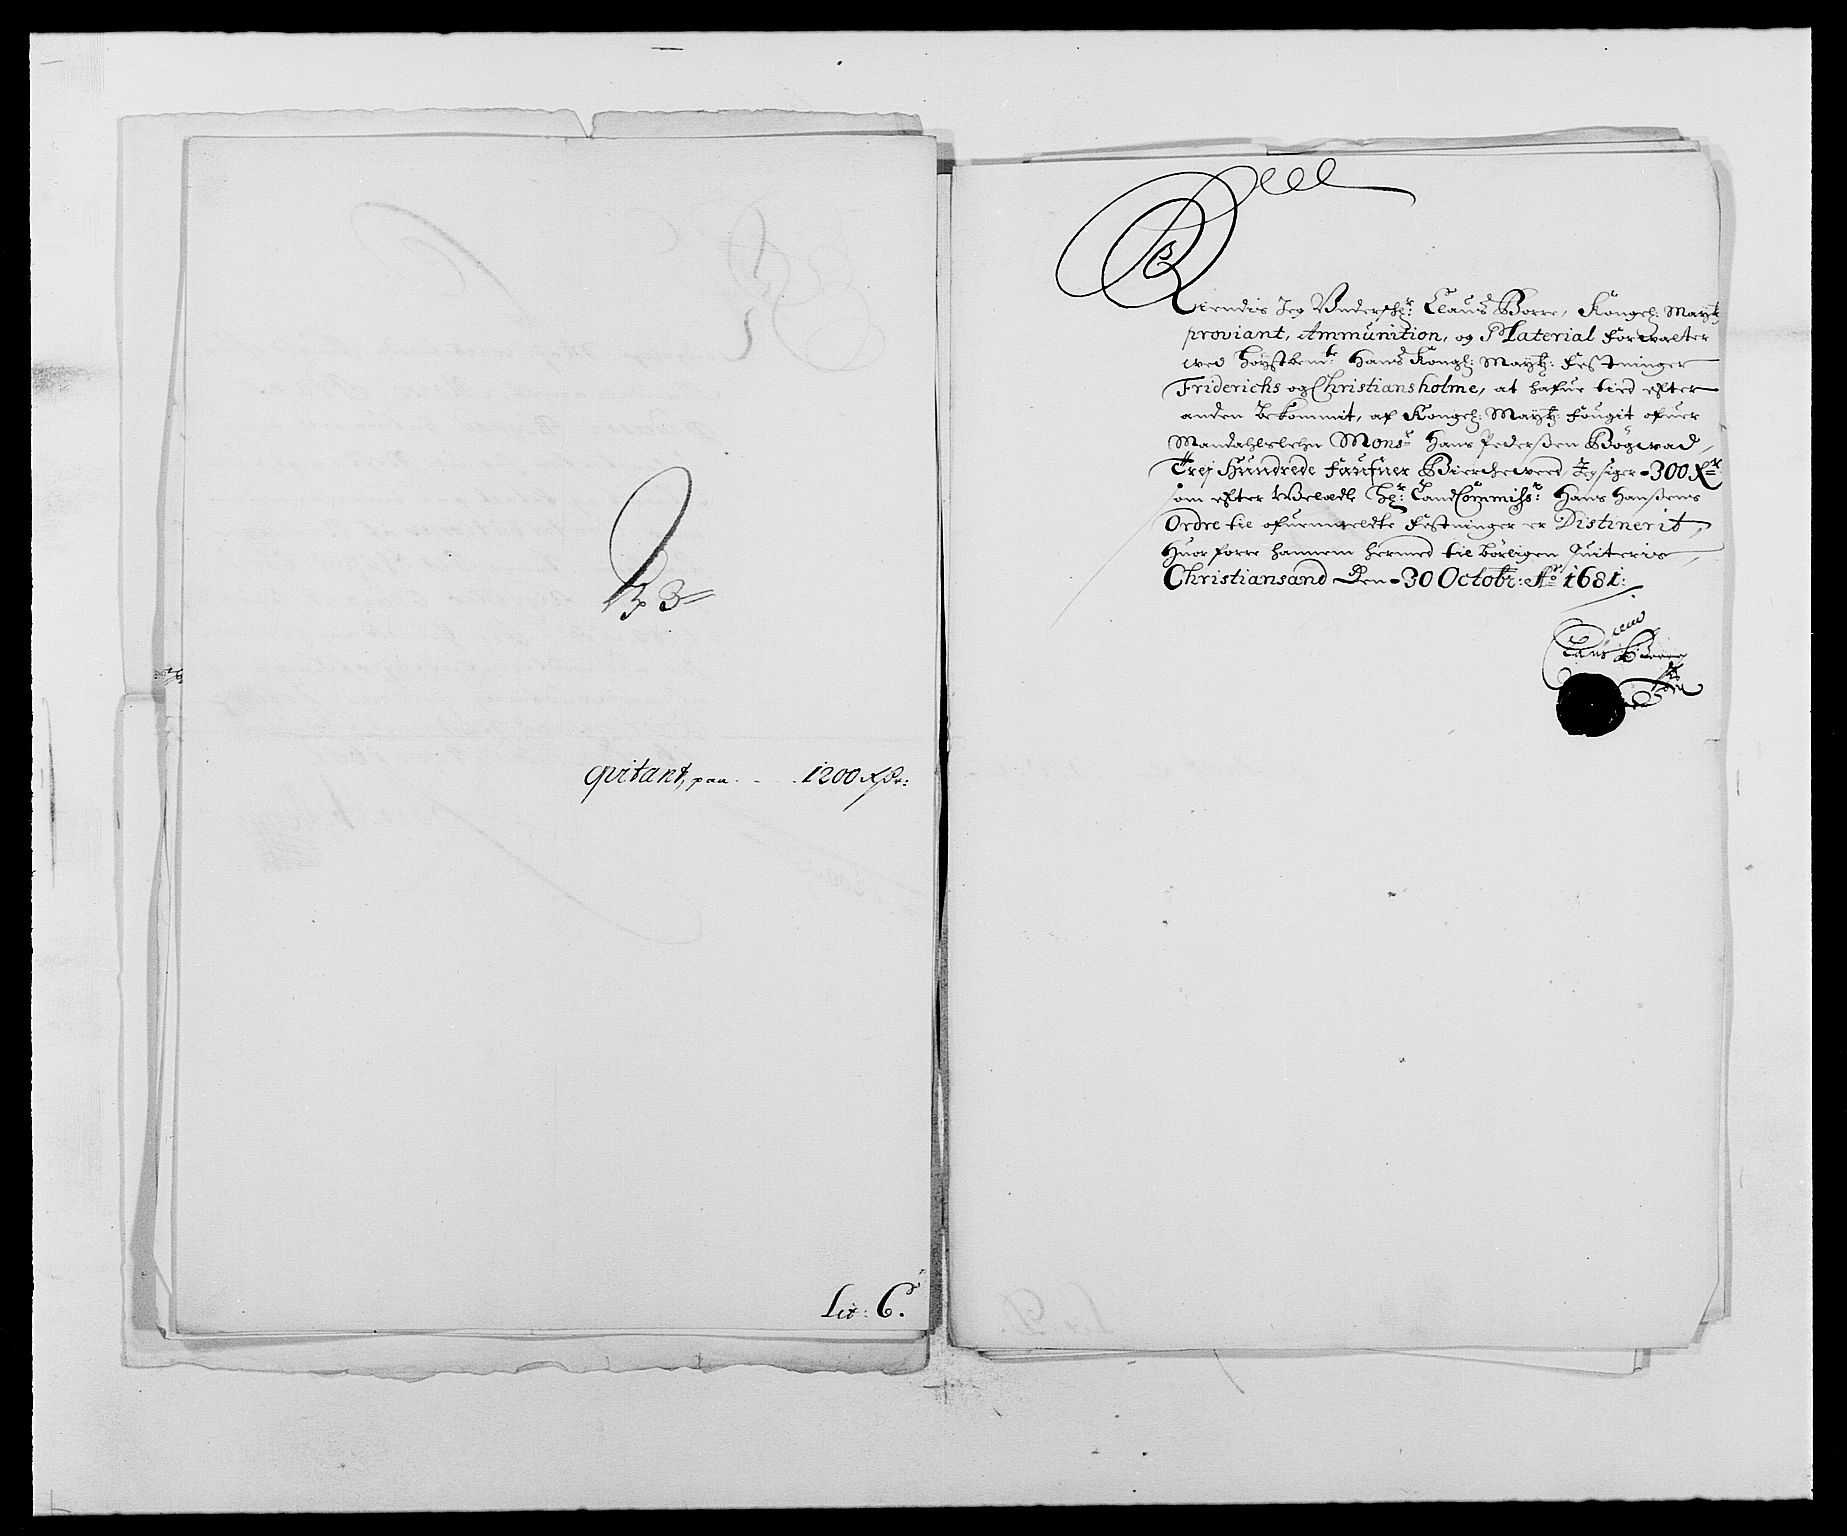 N 3
qvitant, paa . . . 1200 Rdr:
Lit: C.
Kiendis Jeg Underskr: Claus Borre, Kongel: Maytz
proviant, Ammunition, og Material Forwalter
wed høystbemte Hans Kongl: Maytz: Festninger
Friderichs og Christiansholme, at hafue tied efter
anden bekommit, af Kongel: Maytz: fougit ofuer
Mandahls lehn Monsr Hans Pederßen Bögwad,
Trej Hundrede faufner Biercheweed, Jeg siger - 300 f
som efter Weladle Hr: LandCommiss: Hans Hanßens
Ordre til ofuenmeldte Festninger er Distinerit,
Huorforre hannem hermed til börligen Quiteris
Christiansand Den - 30 Octobr: Ao 1681:
Claus Borre